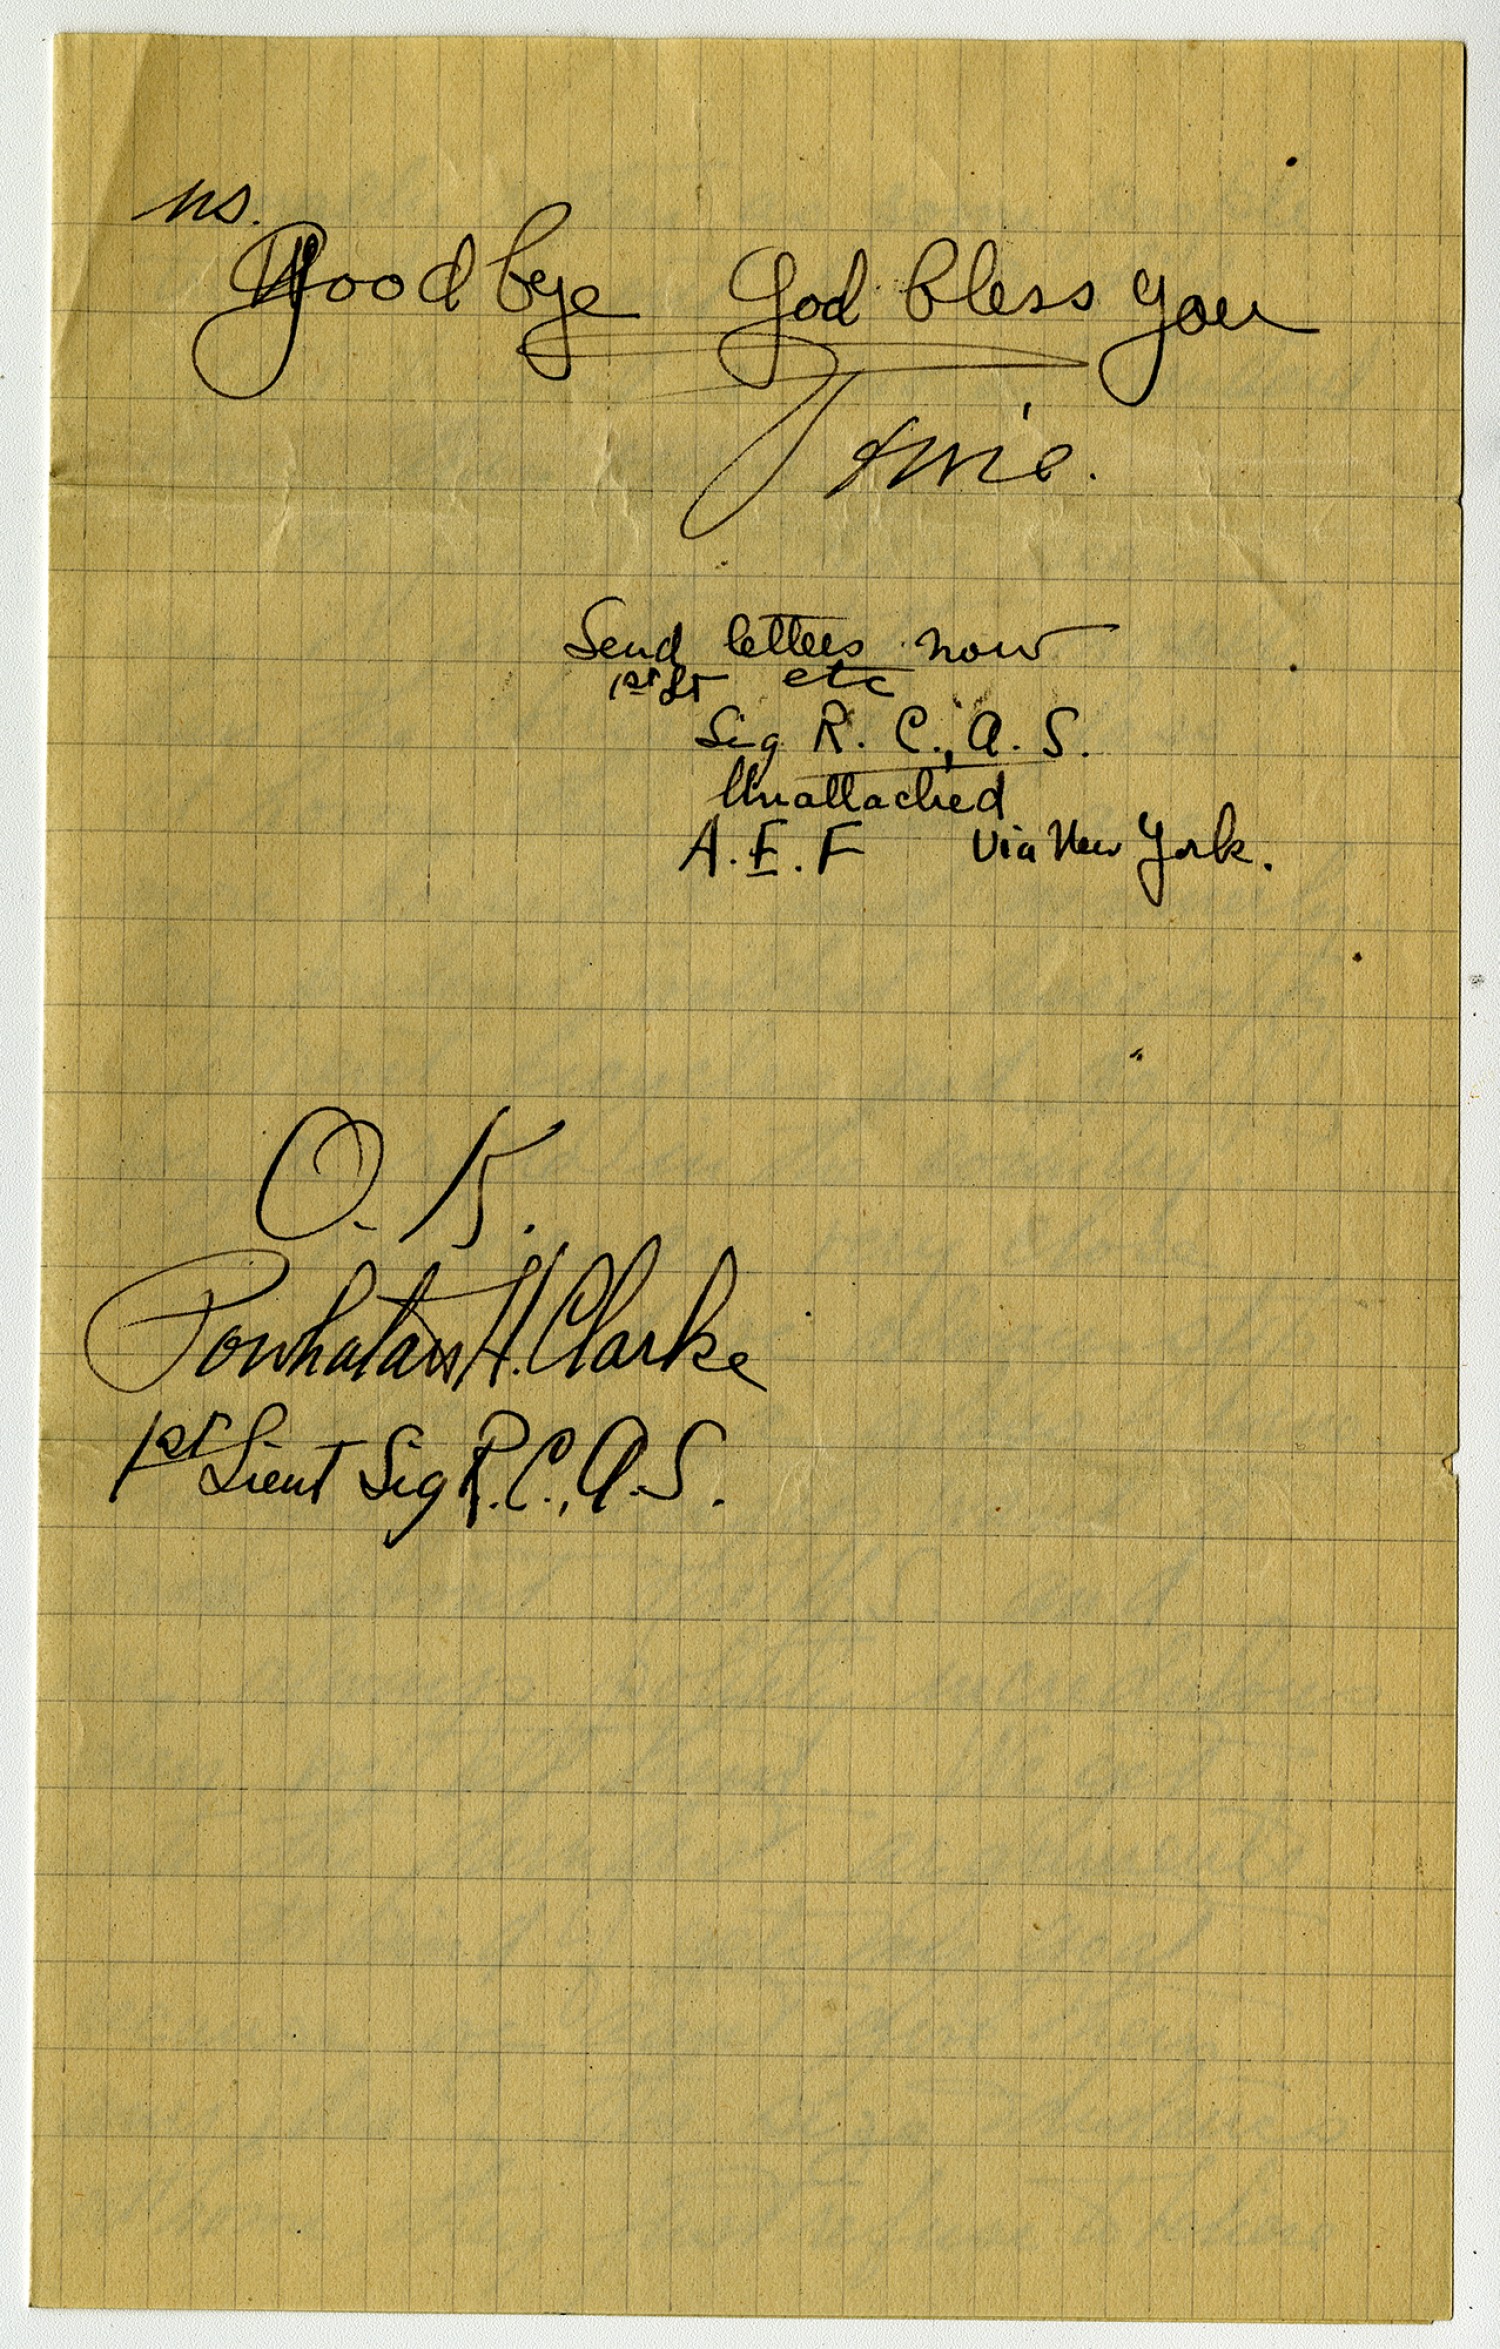 us.
Goodbye God bless you
Send letters now
1st Lt etc
Sig R. C., A. S.
Unattached
A. E. F Via New York.
O. K.
Powhatan H. Clarke
1st Lieut Sig R. C., A. S.